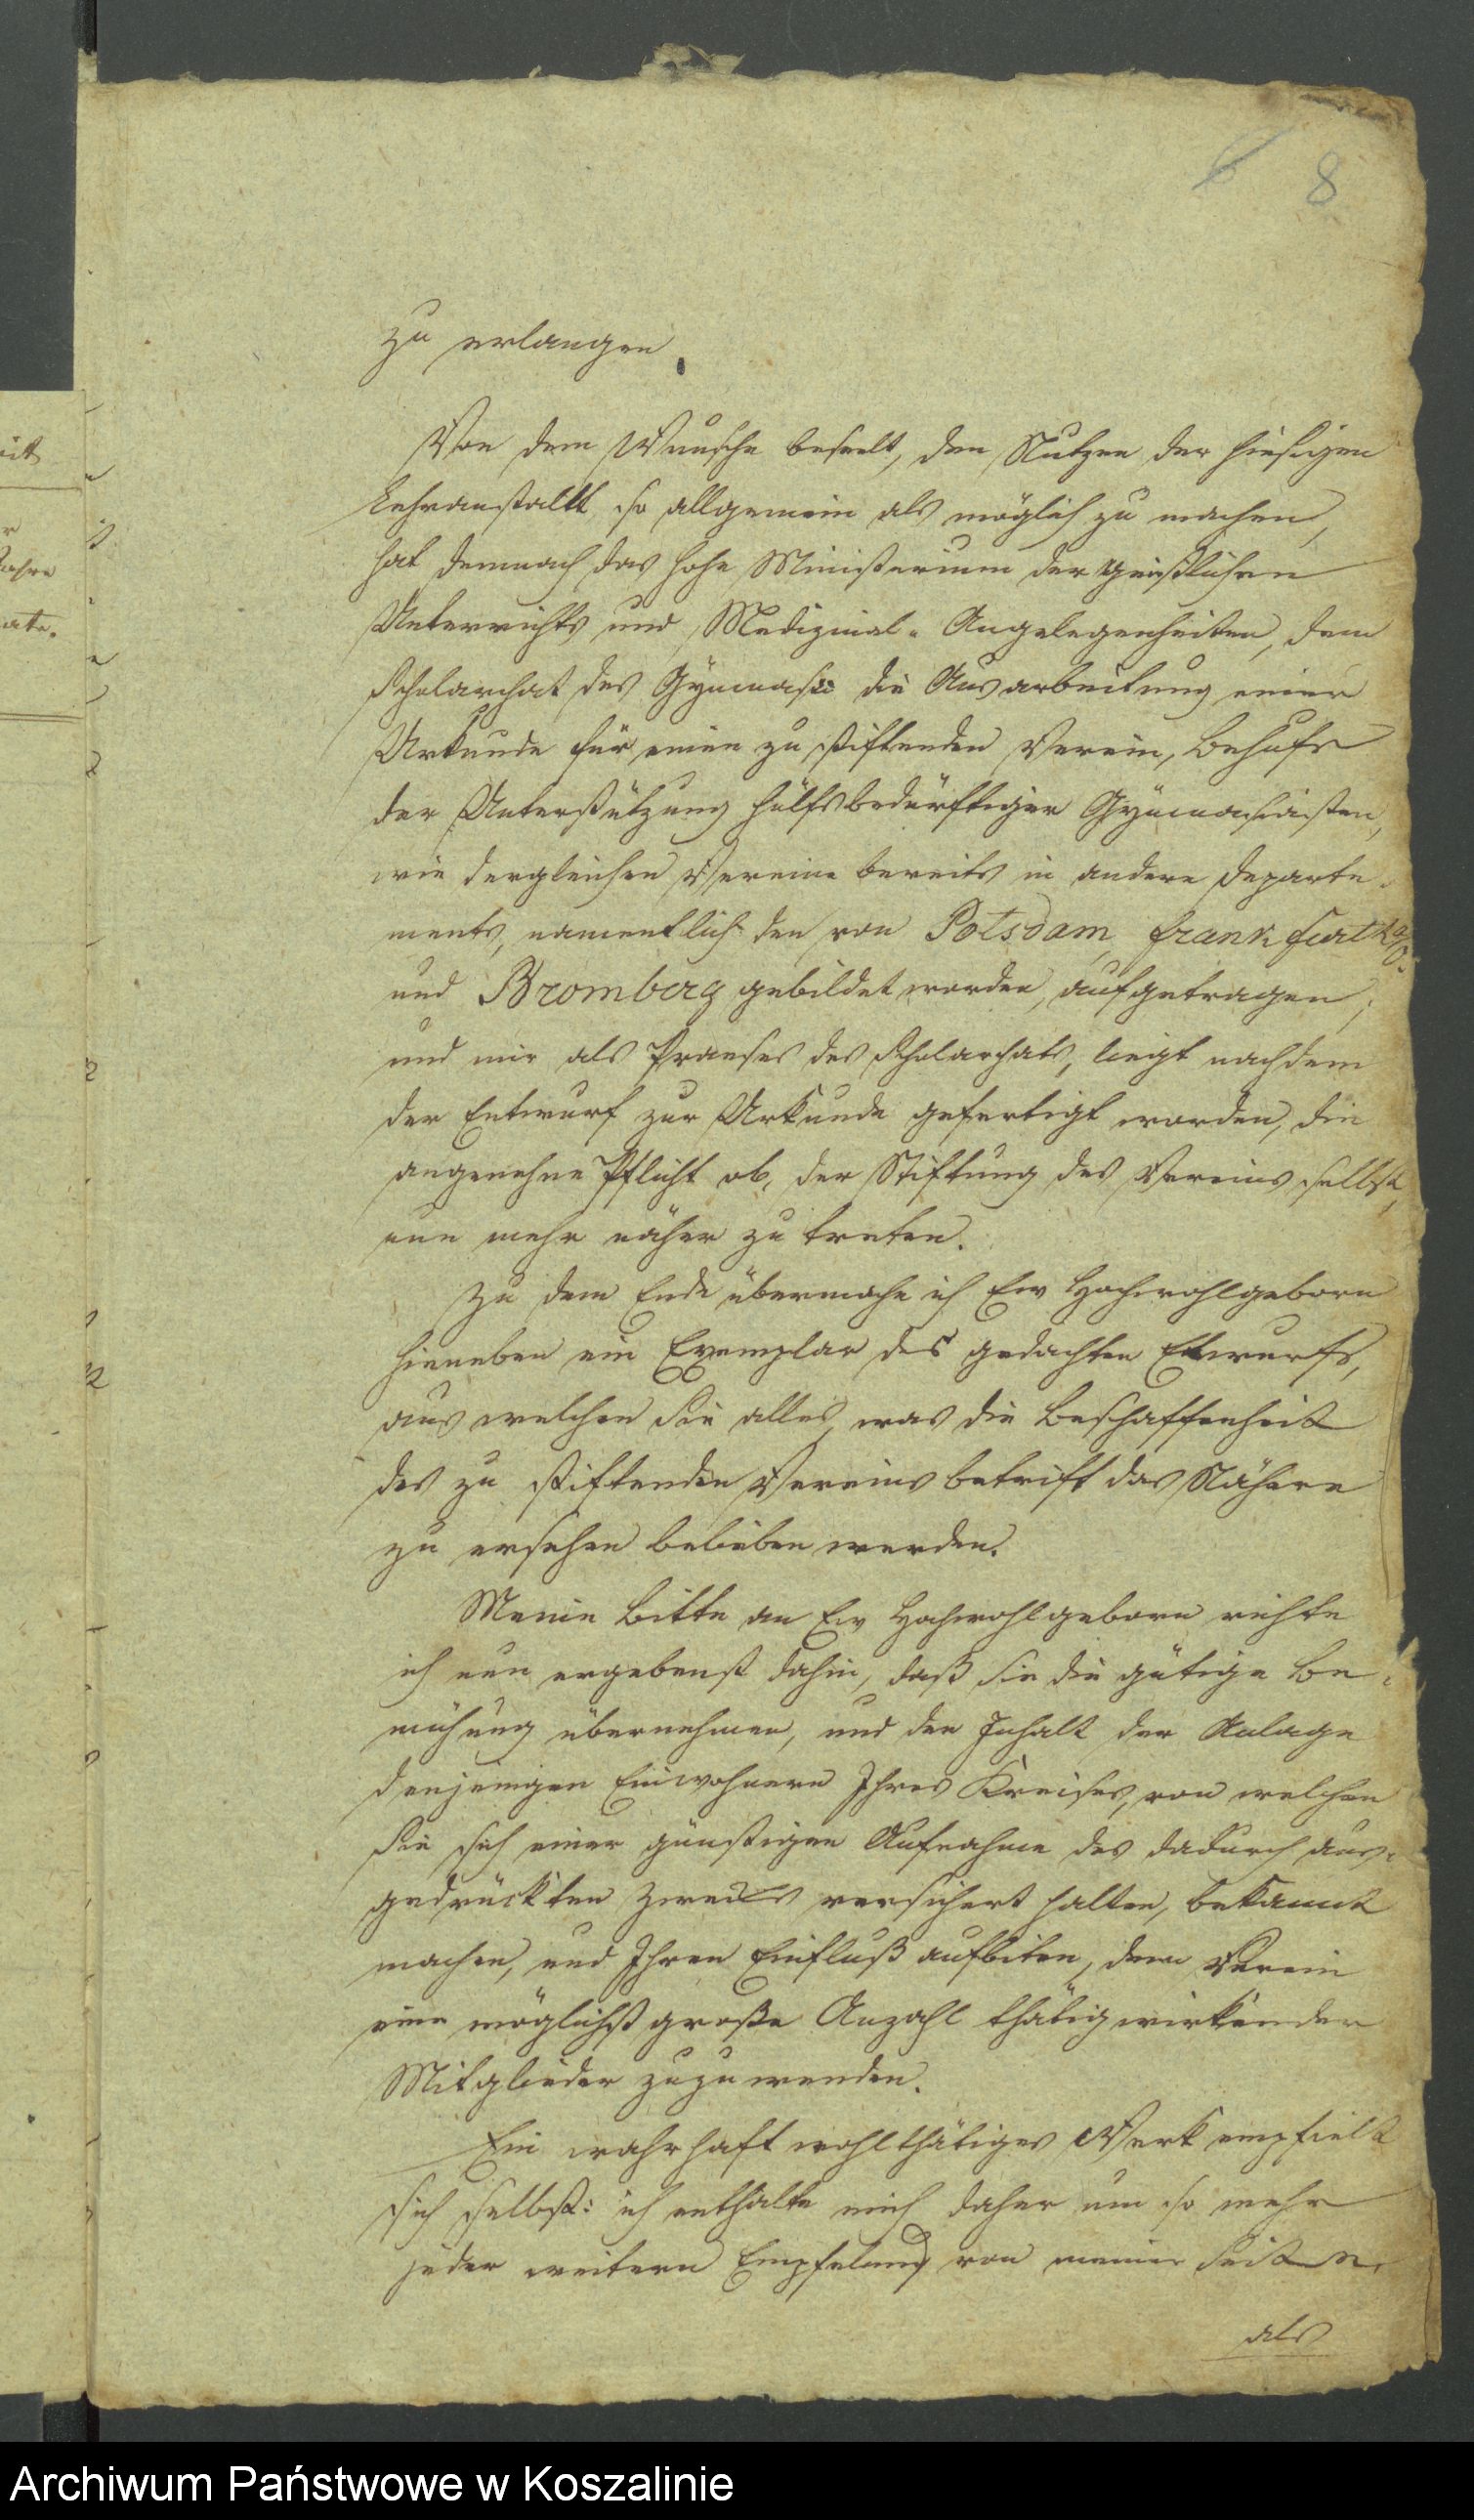 6 8
zu erlangen.
Von dem Wunsche beseelt, den Nutzen der hiesigen
Lehranstallt so allgemein als möglich zu machen,
hat demnach das hohe Ministerium der geistlichen
Unterrichts und Medizinal-Angelegenheiten, dem
Scholarchat des Gÿmnasii die Ausarbeitung einer
Urkunde für einen zu stiftenden Verein, Behufs
der Unterstützung hülfsbedürftiger Gÿmnasiasten,
wie dergleichen Vereine bereits in andere Departe-
ments, namentlich den von Potsdam, Frankfurth a/O.
und Bromberg gebildet worden, aufgetragen;
und mir als Praeses des Scholarchats, liegt nachdem
der Entwurf zur Urkunde gefertigt worden, die
angenehme Pflicht ob, der Stiftung des Vereins selbst,
nun mehr näher zu treten.
Zu dem Ende übermache ich Ew Hochwohlgeborn
hieneben ein Exemplar des gedachten Entwurfs,
aus welchen Sie alles, was die Beschaffenheit
des zu stiftenden Vereins betrift das Nähere
zu ersehen belieben werden.
Meine Bitte an Ew Hochwohlgeborn richte
ich nun ergebenst dahin, daß Sie die gütige Be-
mühung übernehmen, und den Inhalt der Anlage
denjenigen Einwohnern Ihres Kreises, von welchen
Sie sich einer günstigen Aufnahme des dadurch aus-
gedrückten Zwecks versichert halten, bekannt
machen, und Ihren Einfluß aufbiten, dem Verein
eine möglichst große Anzahl thätig wirkender
Mitglieder zuzuwenden.
Ein wahrhaft wohlthätiges Werk empfielt
sich selbst: ich enthalte mich daher um so mehr
jeder weitern Empfelung von meiner Seite,
als
Archiwum Państwowe w Koszalinie